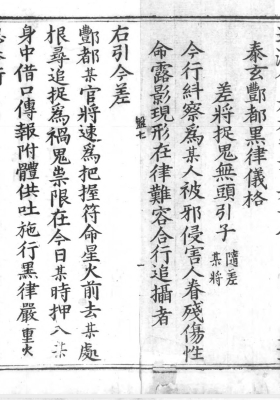 泰玄酆都黑律儀格
差將捉鬼無頭引子 隨差某將
今行糾察爲某人被邪侵害人眷殘傷性
命露影現形在律難容合行追攝者
右引今差
酆都某官將速爲把握符命星火前去某處
根尋追捉爲禍鬼祟限在今日某時押入某
身中借口傳報附體供吐施行黑律嚴重火